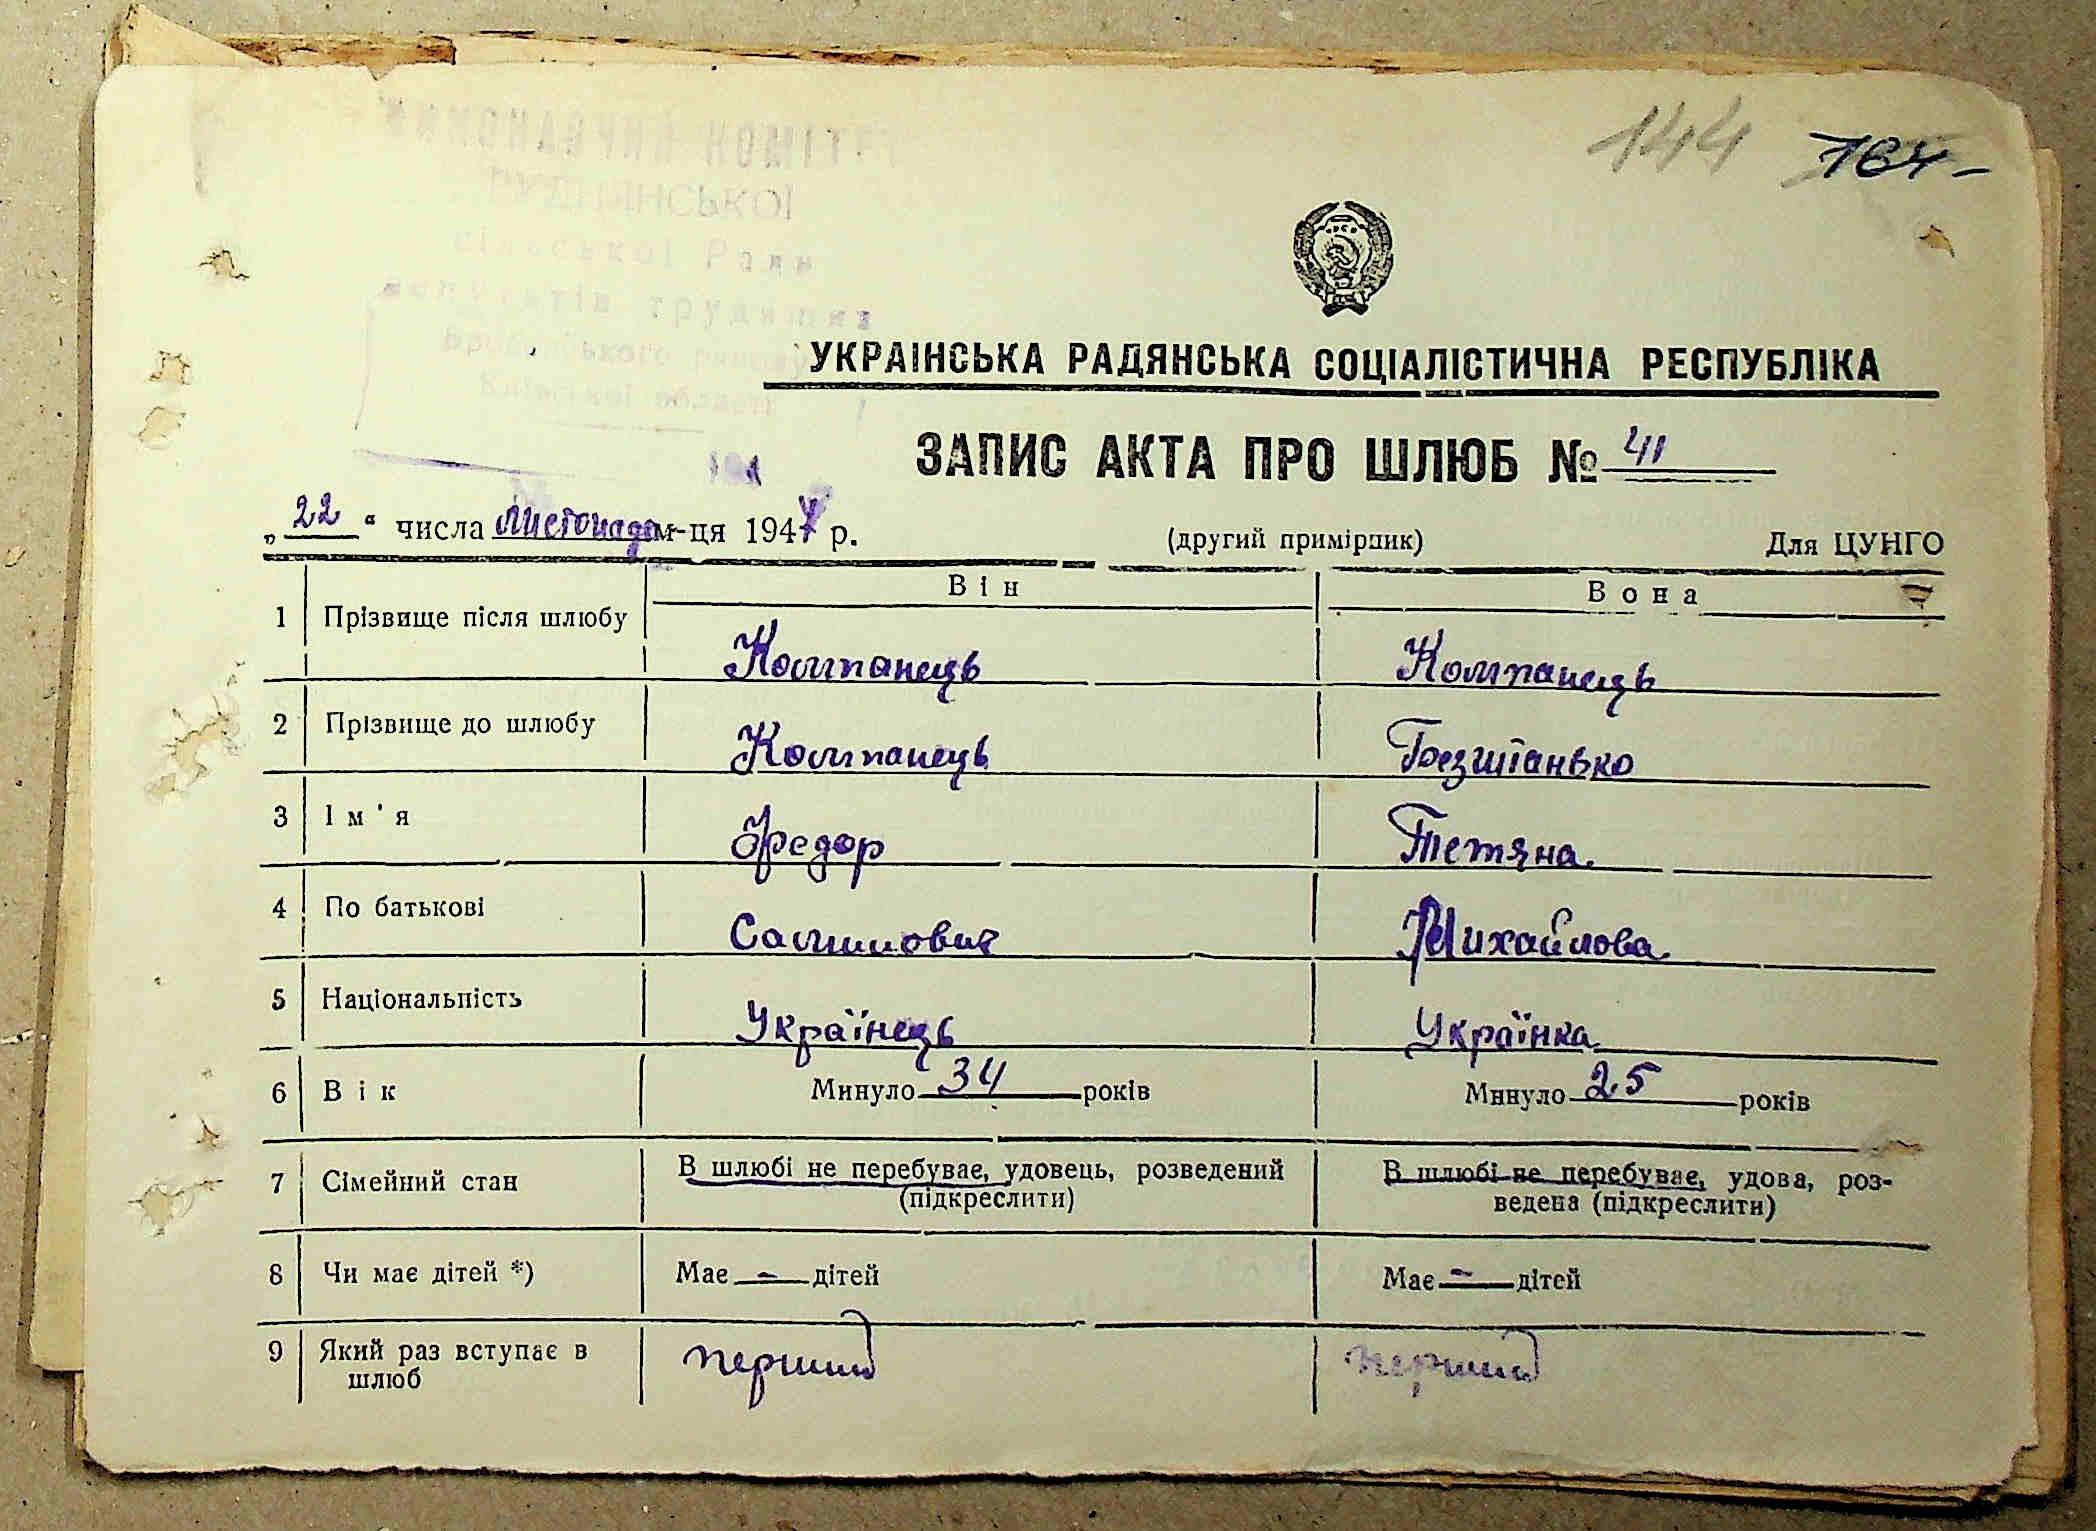 144 164-
ВИКОНАВЧИЙ КОМІТЕТ
РУДНЯНСЬКОЇ
сільської Ради
депутатів трудящих
Броварського району
Київської області
УКРАІНСЬКА РАДЯНСЬКА СОЦІАЛІСТИЧНА РЕСПУБЛІКА
ЗАПИС АКТА ПРО ШЛЮБ № 41
„22“ числа листопада м-ця 1947 р. (другий примірник) Для ЦУНГО
Він Вона
1 Прізвище після шлюбу Компанець Компанець
2 Прізвище до шлюбу Компанець Безштанько
3 Ім'я Федор Тетяна.
4 По батькові Самійлович Михайлова.
5 Національність Українець Українка
6 Вік Минуло 34 років Минуло 25 років
7 Сімейний стан В шлюбі не перебуває, удовець, розведений (підкреслити) В шлюбі не перебуває, удова, роз-
ведена (підкреслити)
8 Чи має дітей *) Має - дітей Має - дітей
9 Який раз вступає в шлюб перший перший